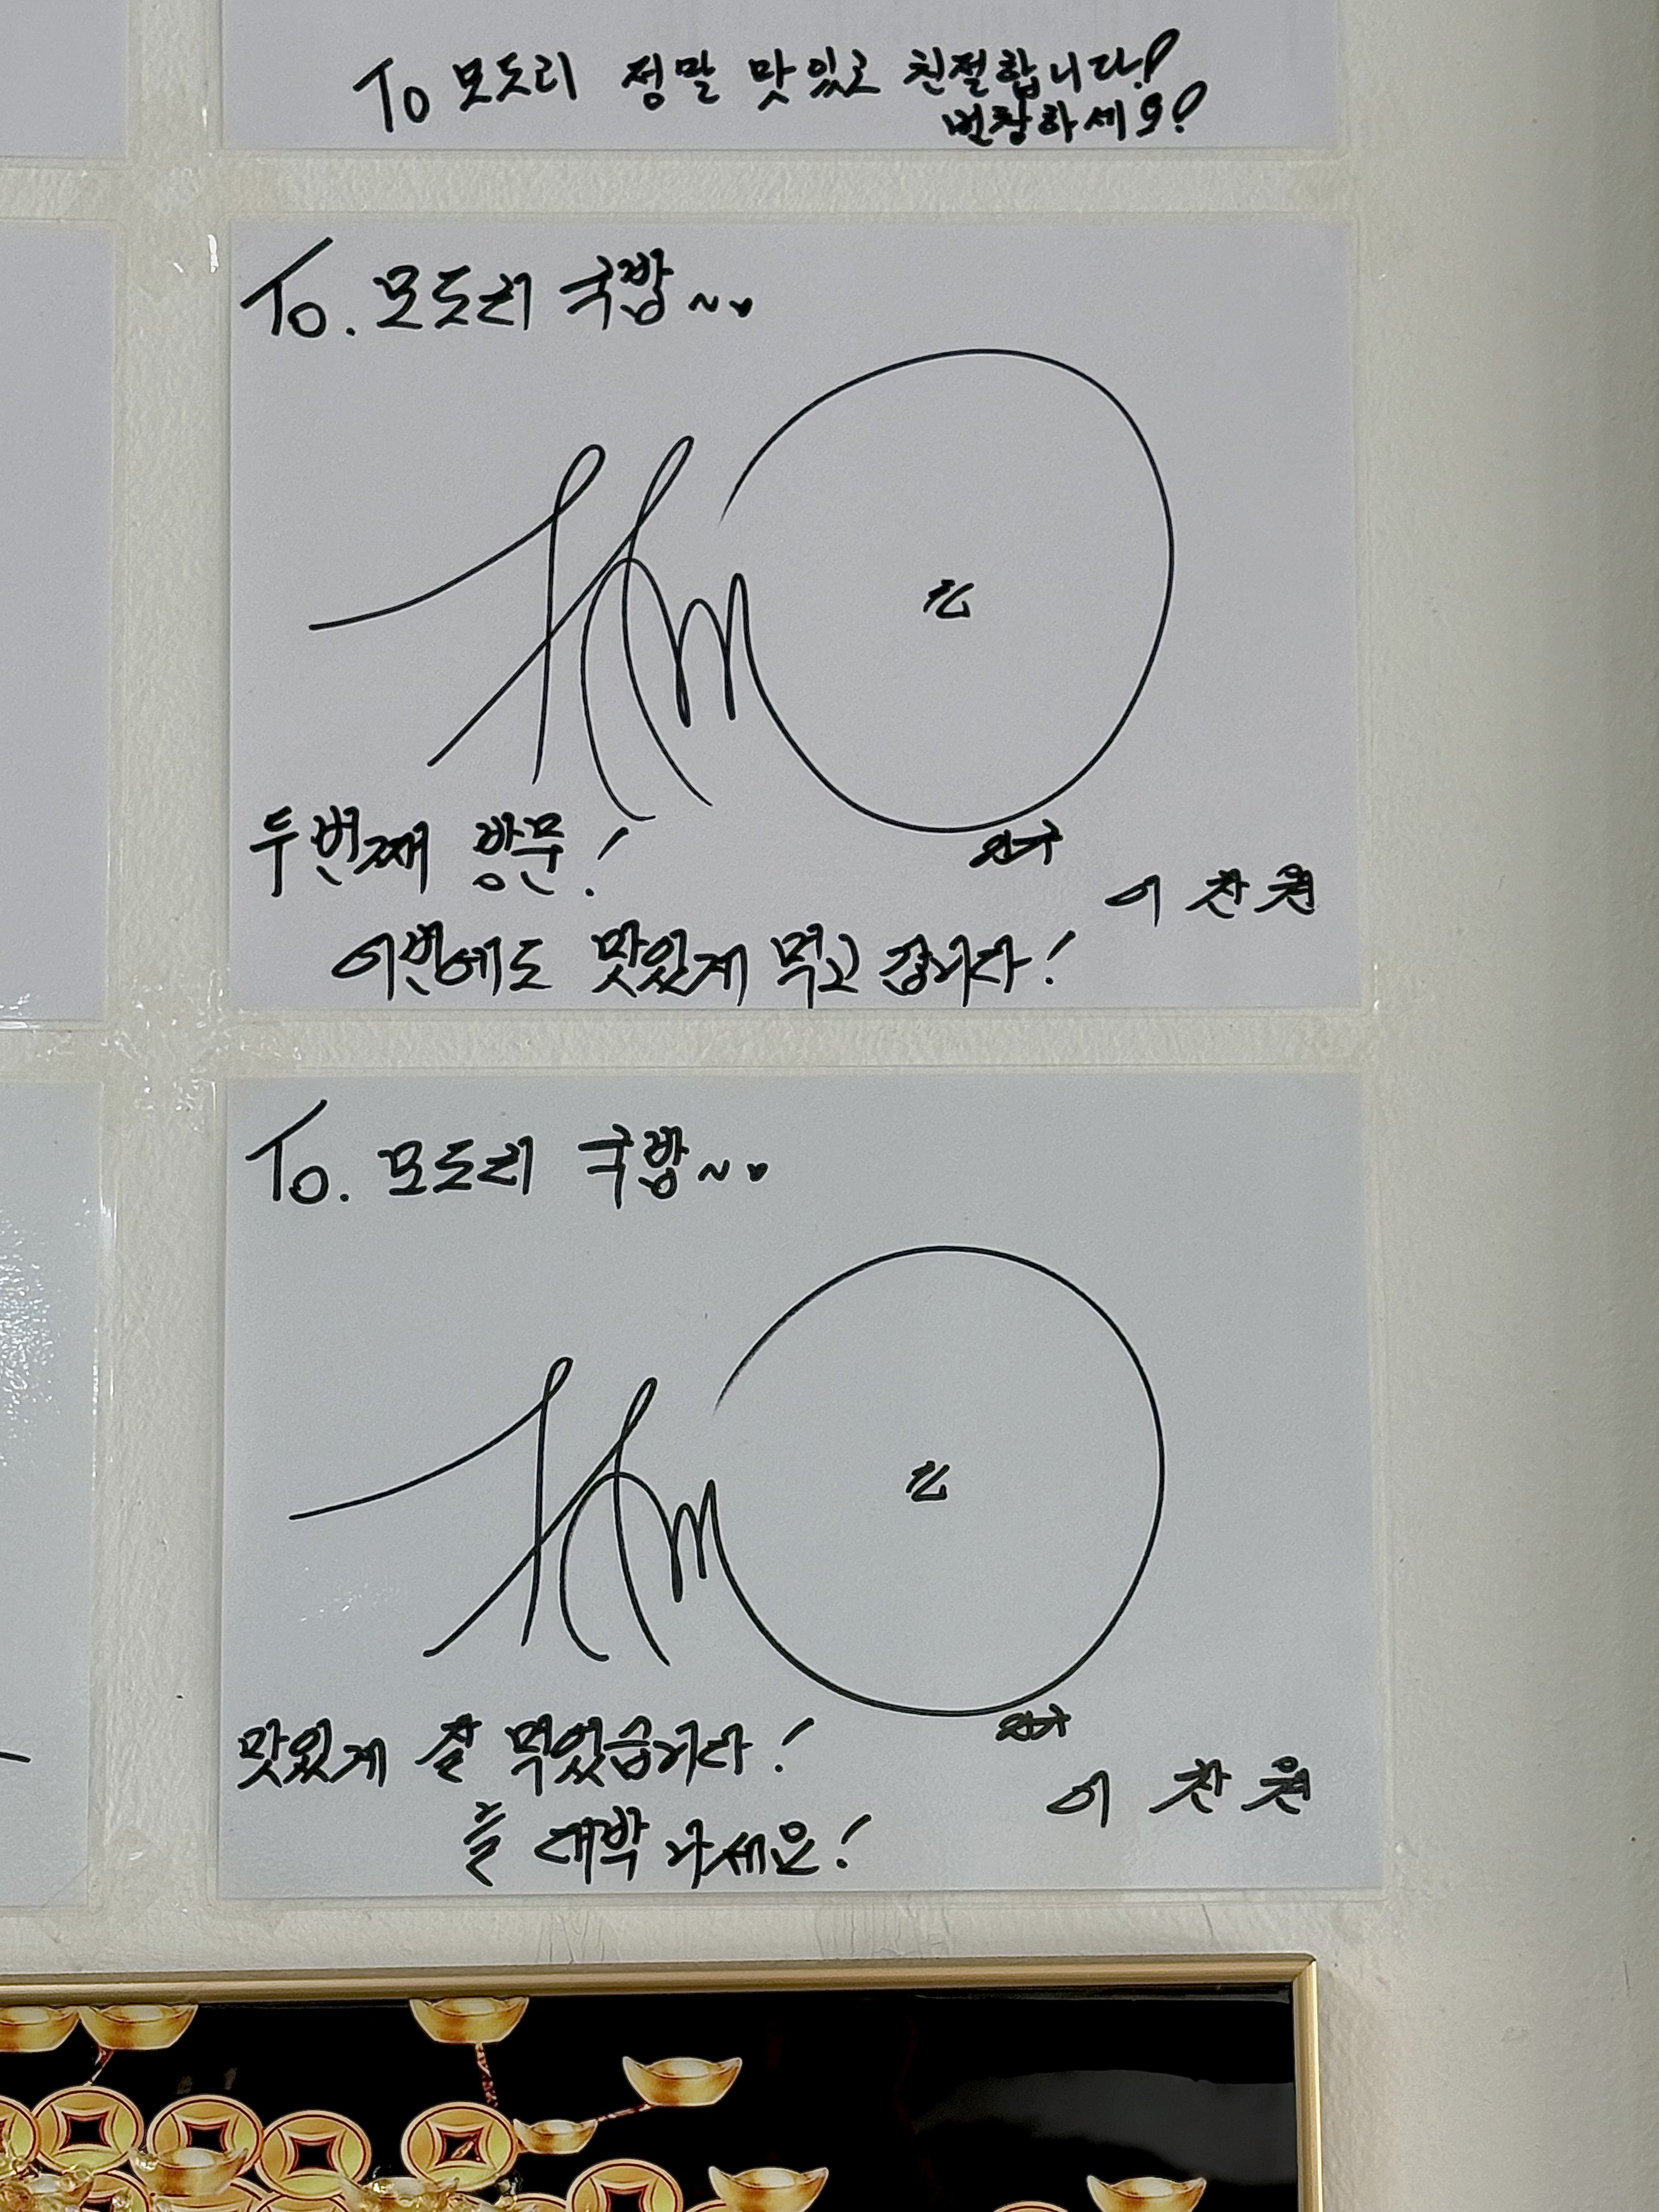 To 모도리 정말 맛있고 친절합니다!
번창하세요!
To. 모도리 국밥~
두번째 방문!
이찬원
이번에도 맛있게 먹고 갑니다!
To. 모도리 국밥~
맛있게 잘 먹었습니다!
이찬원
늘 대박 나세요!